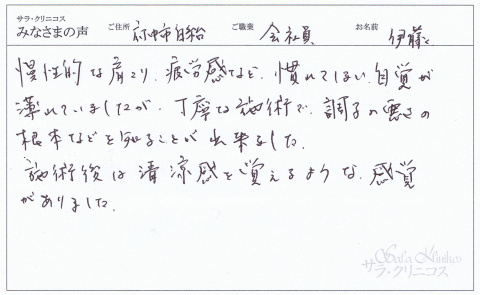 サラ・クリニコス
みなさまの声 ご住所 府中市白糸台 ご職業 会社員 お名前 伊藤
慢性的な肩こり、疲労感など、慣れてしまい自覚が
薄れていましたが、丁寧な施術で、調子の悪さの
根本などを知ることが出来ました。
施術後は清涼感を覚えるような、感覚
がありました。
Sara Klinikos
サラ・クリニコス